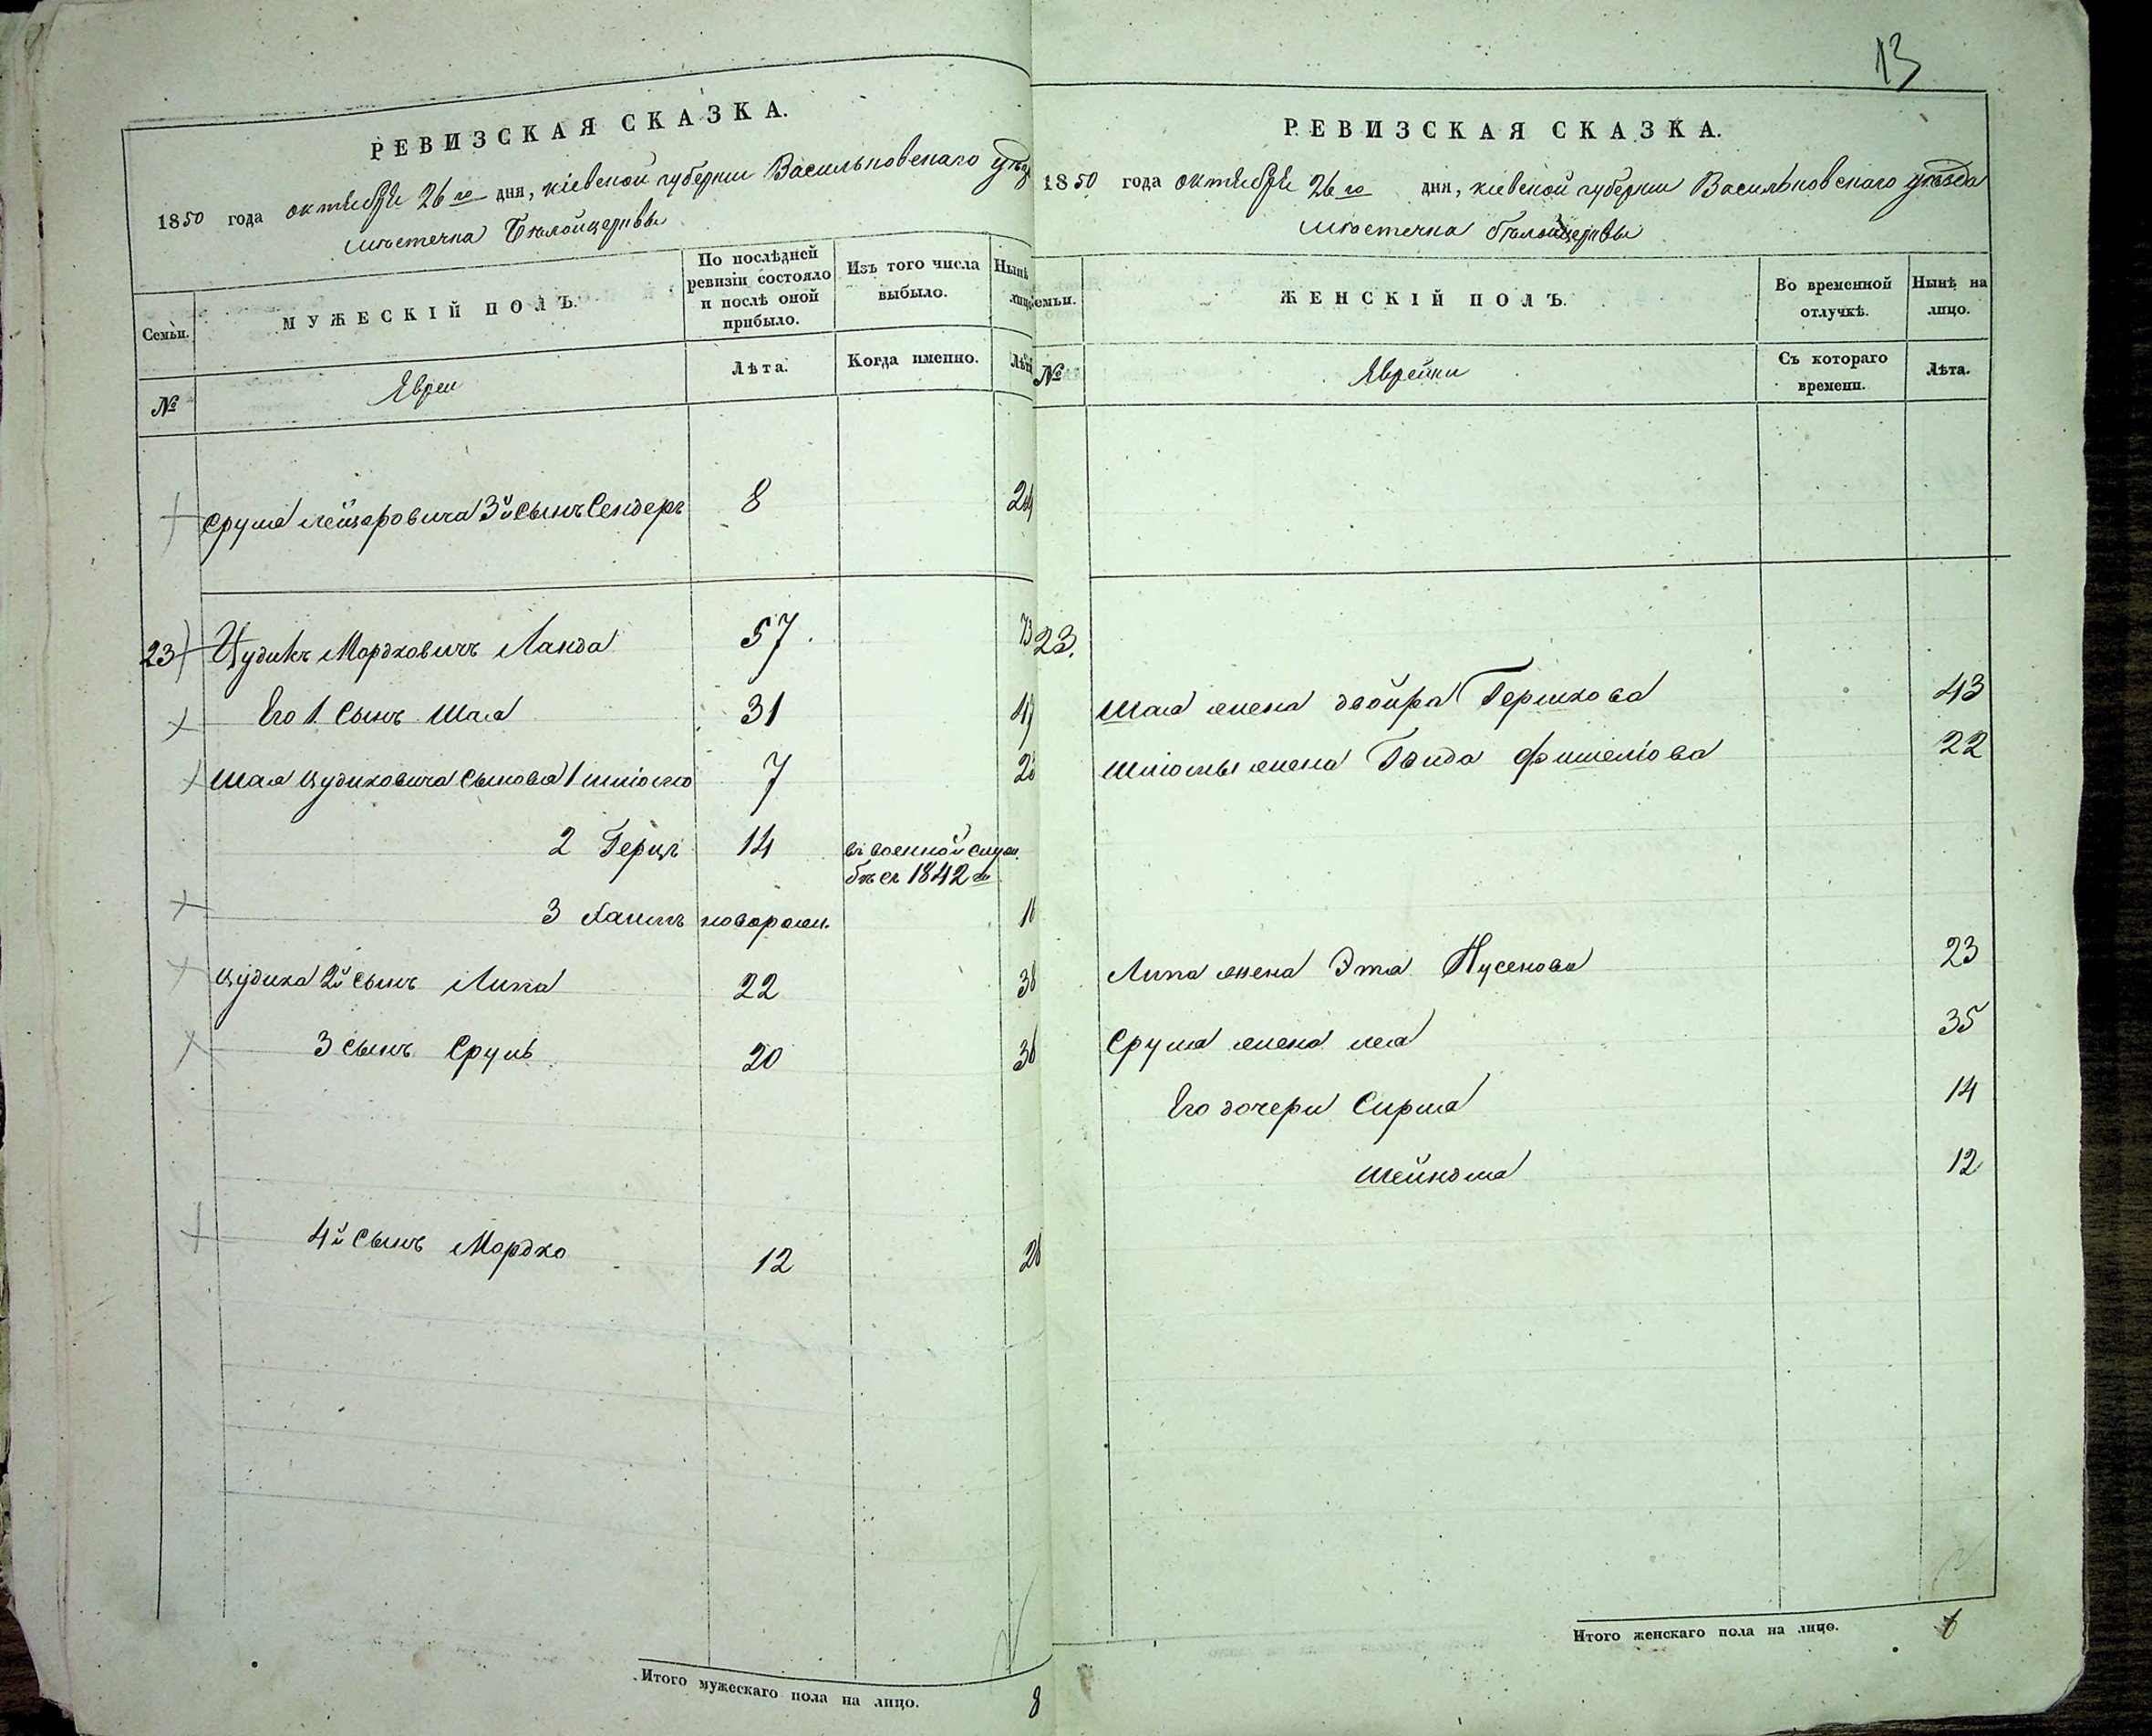 13
РЕВИЗСКАЯ СКАЗКА.
1850 года октября 26го дня, кіевской губерніи Васильковскаго уѣзда
мѣстечка Бѣлойцеркви
Семьи.
МУЖЕСКІЙ ПОЛЪ.
По послѣдней ревизіи состояло и послѣ оной прибыло.
Изъ того числа выбыло.
Нынѣ
№
Евреи
Лѣта.
Когда именно.
Лѣт
Сруля Лейзеровича 3й сынъ Сендеръ 8 24
23 Цудикъ Мордковичъ Ланда 57. 73
Его 1 сынъ Шая 31 47
Шая Цудиковича сыновья 1 Шліомо 7 23
2 Герцъ 14 въ военной служ
бѣ съ 1842го
3 Хаимъ новорожд. 16
Цудика 2й сынъ Липа 22 38
3 сынъ Сруль 20 36
4й сынъ Мордко 12 28
Итого мужескаго пола на лицо. 8
РЕВИЗСКАЯ СКАЗКА.
1850 года октября 26го дня, кіевской губерніи Васильковскаго уѣзда
мѣстечка бѣлойцеркви
семьи.
ЖЕНСКІЙ ПОЛЪ.
Во временной отлучкѣ.
Нынѣ на лицо.
№
Еврейки
Съ котораго времени.
Лѣта.
23.
Шая жена двойра Гершкова 43
Шліомы жена Фишеліова 22
Липа жена Эта Нусенова 23
Сруля жена лея 35
Его дочери Сирля 14
Шейндля 12
Итого женскаго пола на лицо. 6